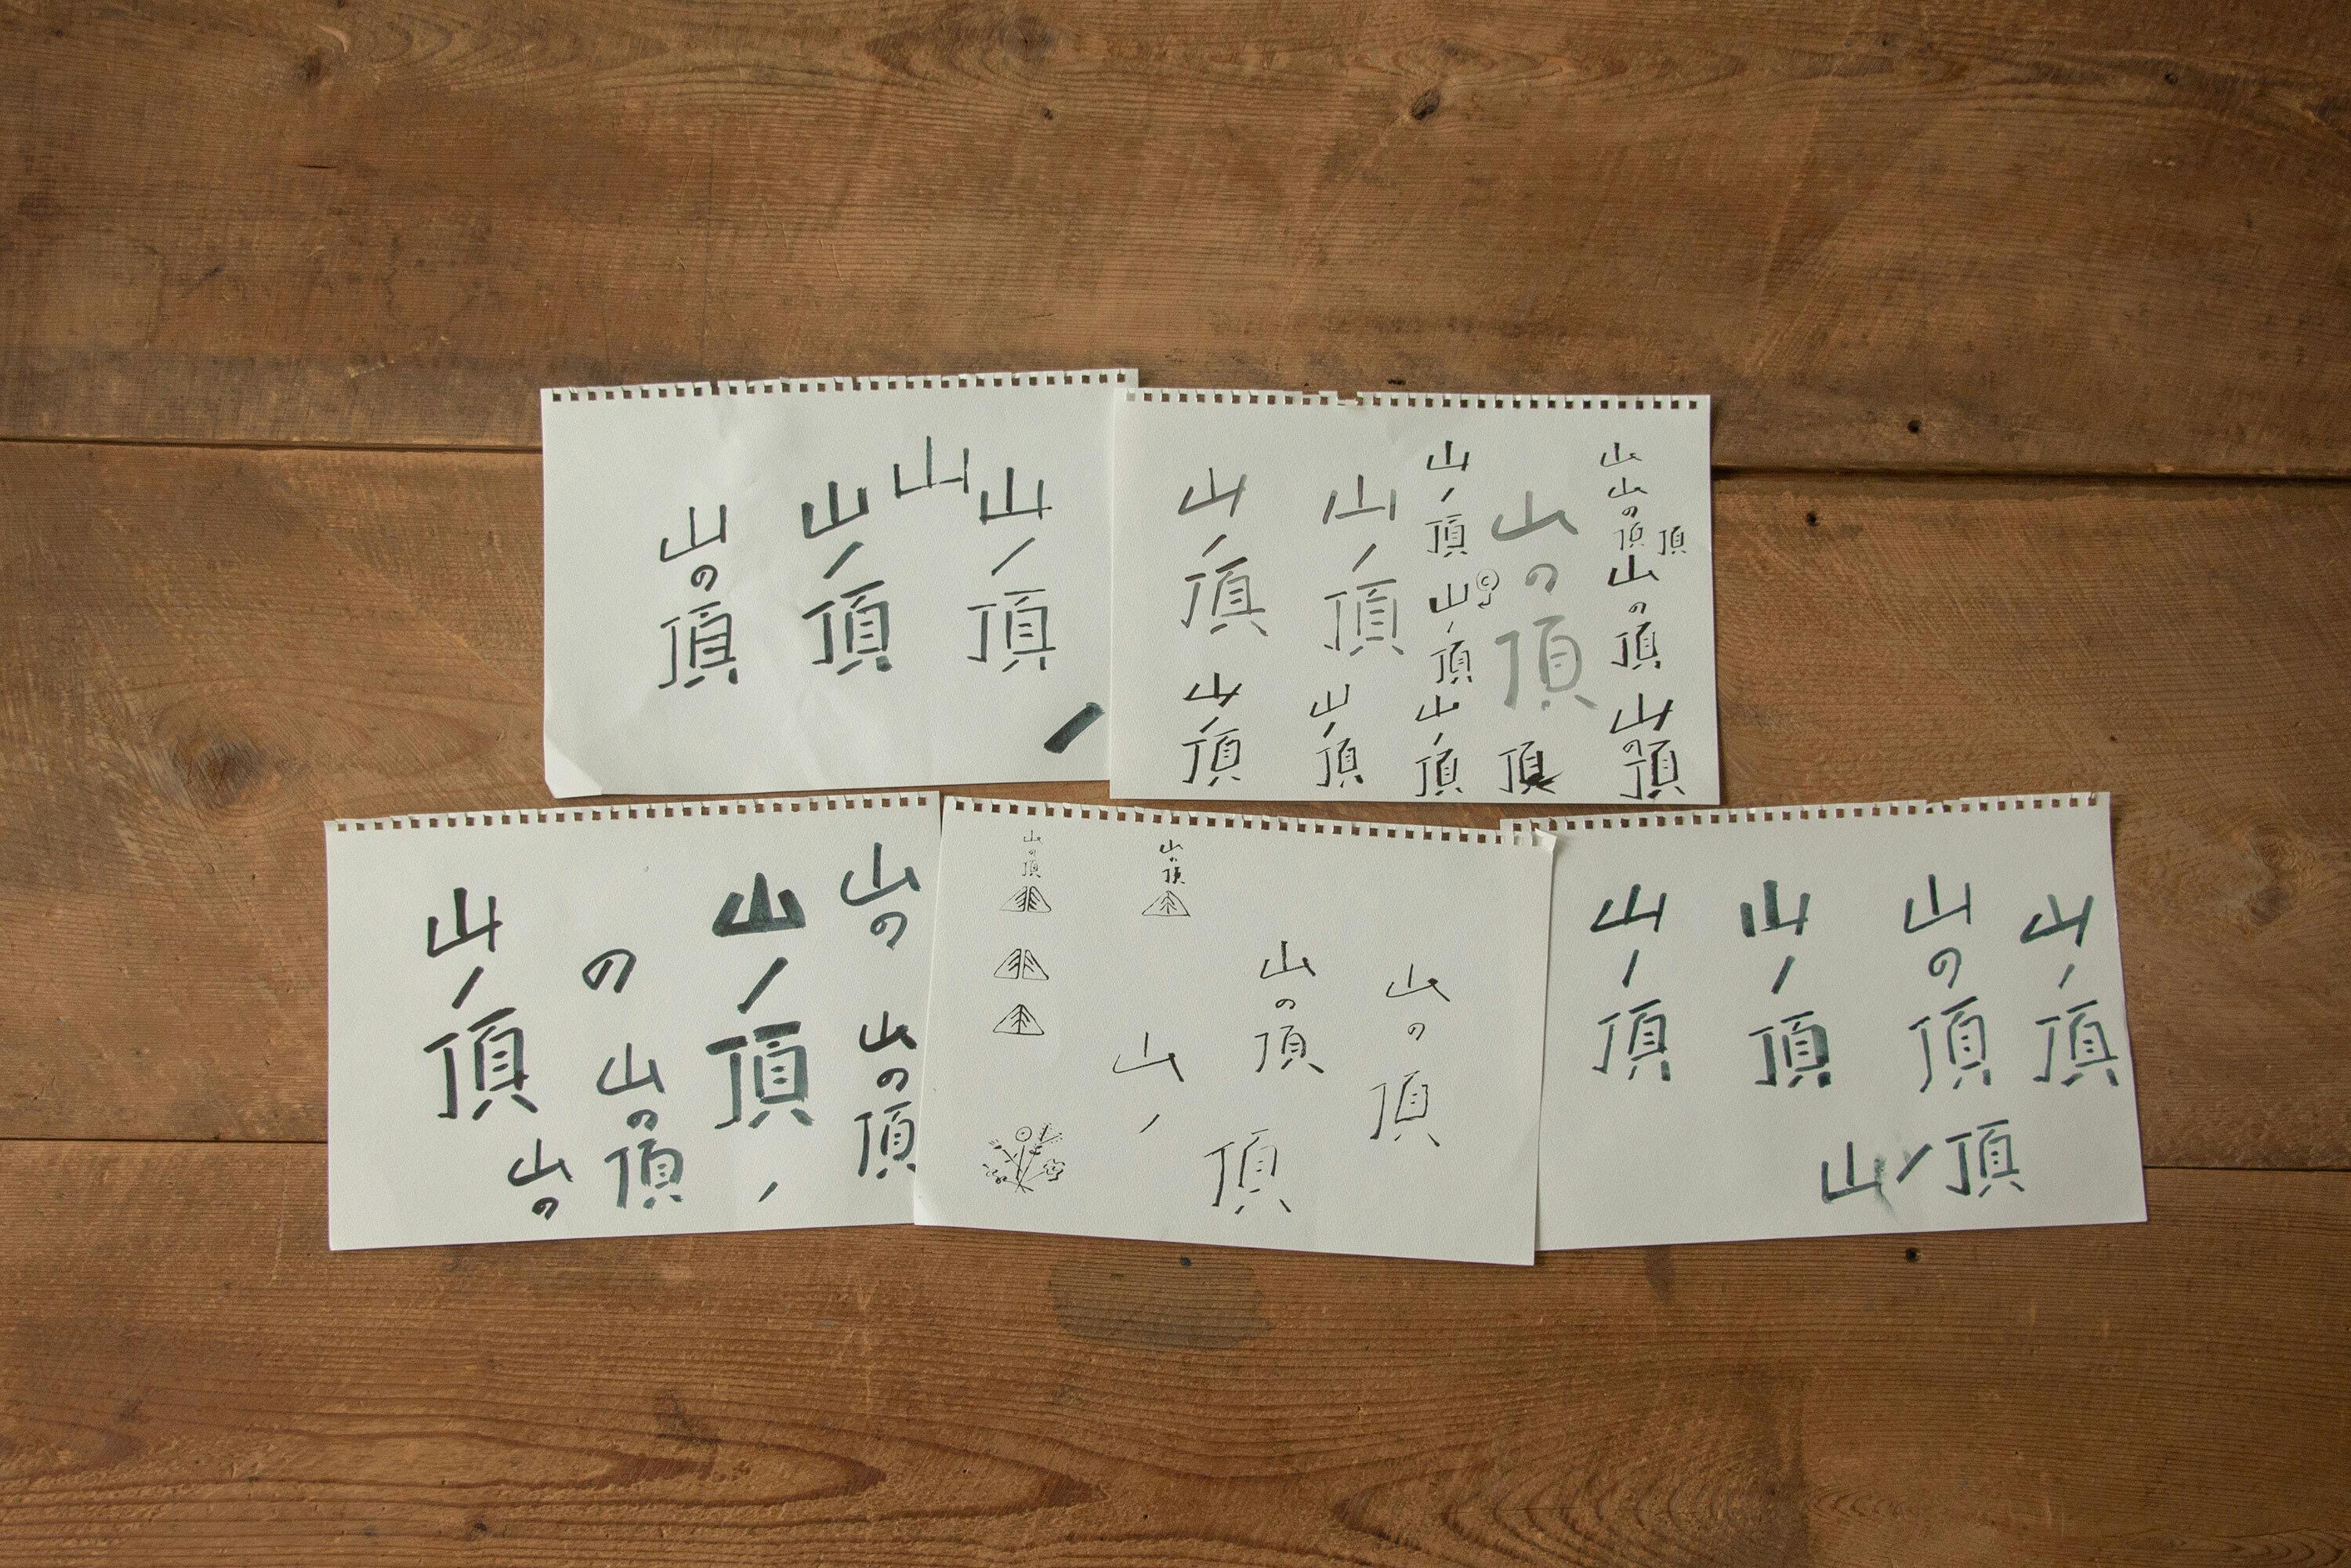 山の頂
山ノ頂
山
山ノ頂
ノ
山ノ頂
山ノ頂
山ノ頂
山ノ頂
山の頂
山
山の頂
頂
山の頂
山ノ頂
山ノ頂
山ノ頂
頂
山の頂
山ノ頂
の
山の頂
山の
山ノ頂
ノ
山の
山の頂
山の頂
山の頂
山ノ頂
山の頂
山の頂
山ノ頂
山ノ頂
山の頂
山ノ頂
山ノ頂